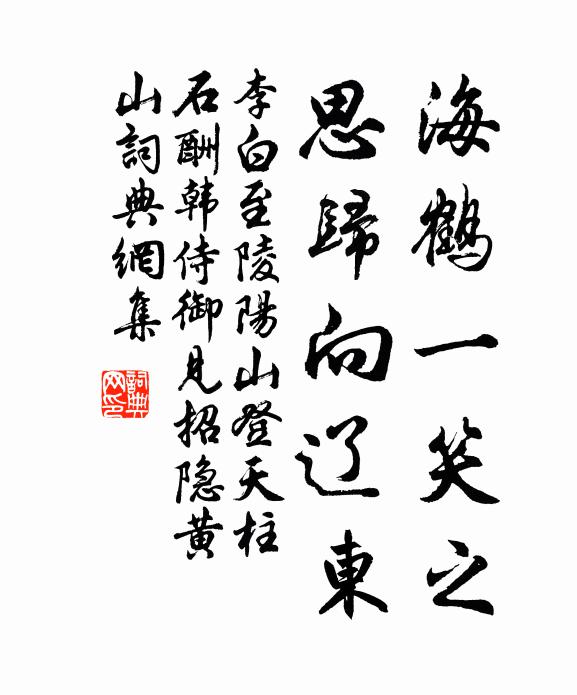 海鹤一笑之
思歸向辽東
李白至陵陽山登天柱
石酬韩侍御見招隐黄
山詞典網集
詞典网印